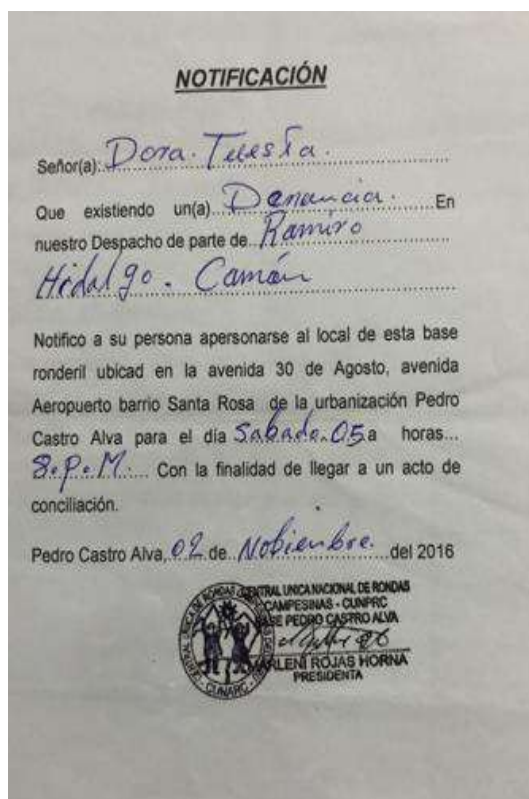 NOTIFICACIÓN
Señor(a): Dora. Tuesta.
Que existiendo un(a) Denuncia. En
nuestro Despacho de parte de Ramiro
Hidalgo. Camán
Notifico a su persona apersonarse al local de esta base
ronderil ubicad en la avenida 30 de Agosto, avenida
Aeropuerto barrio Santa Rosa de la urbanización Pedro
Castro Alva para el día Sabado.05 a horas...
8.P.M. Con la finalidad de llegar a un acto de
conciliación.
Pedro Castro Alva, 02 de Nobienbre. del 2016
CENTRAL UNICA NACIONAL DE RONDAS
CAMPESINAS - CUNPRC
BASE PEDRO CASTRO ALVA
MARLENI ROJAS HORNA
PRESIDENTA
CUNARC